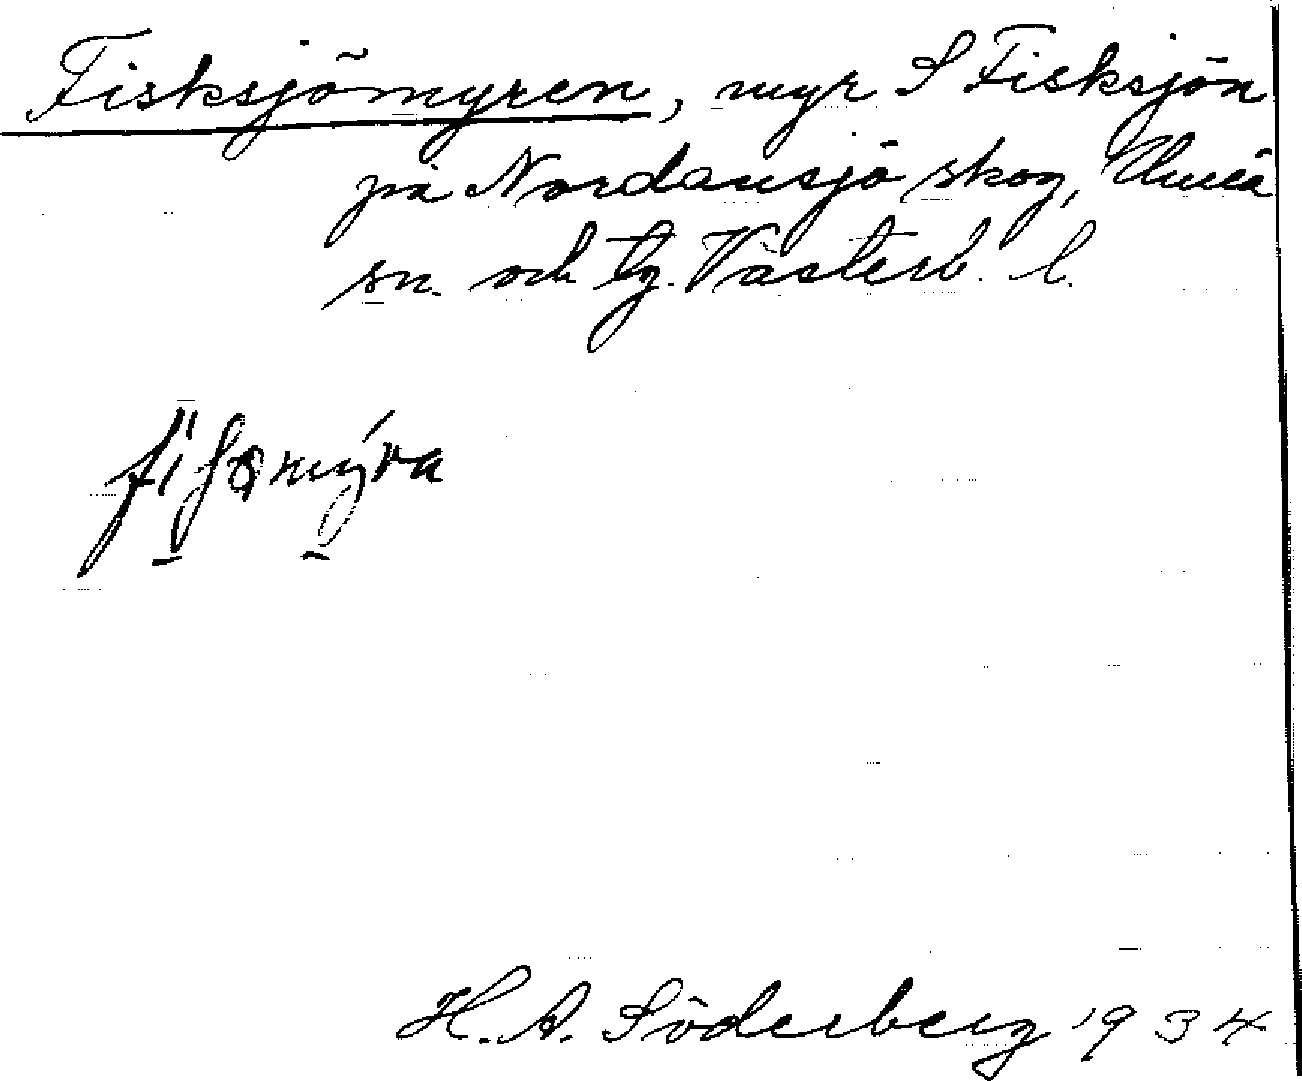 Fisksjömyren, myr S Fisksjön
på Nordansjö skog, Umeå
sn. och tg. Västerb. l.
H. A. Söderberg 1934